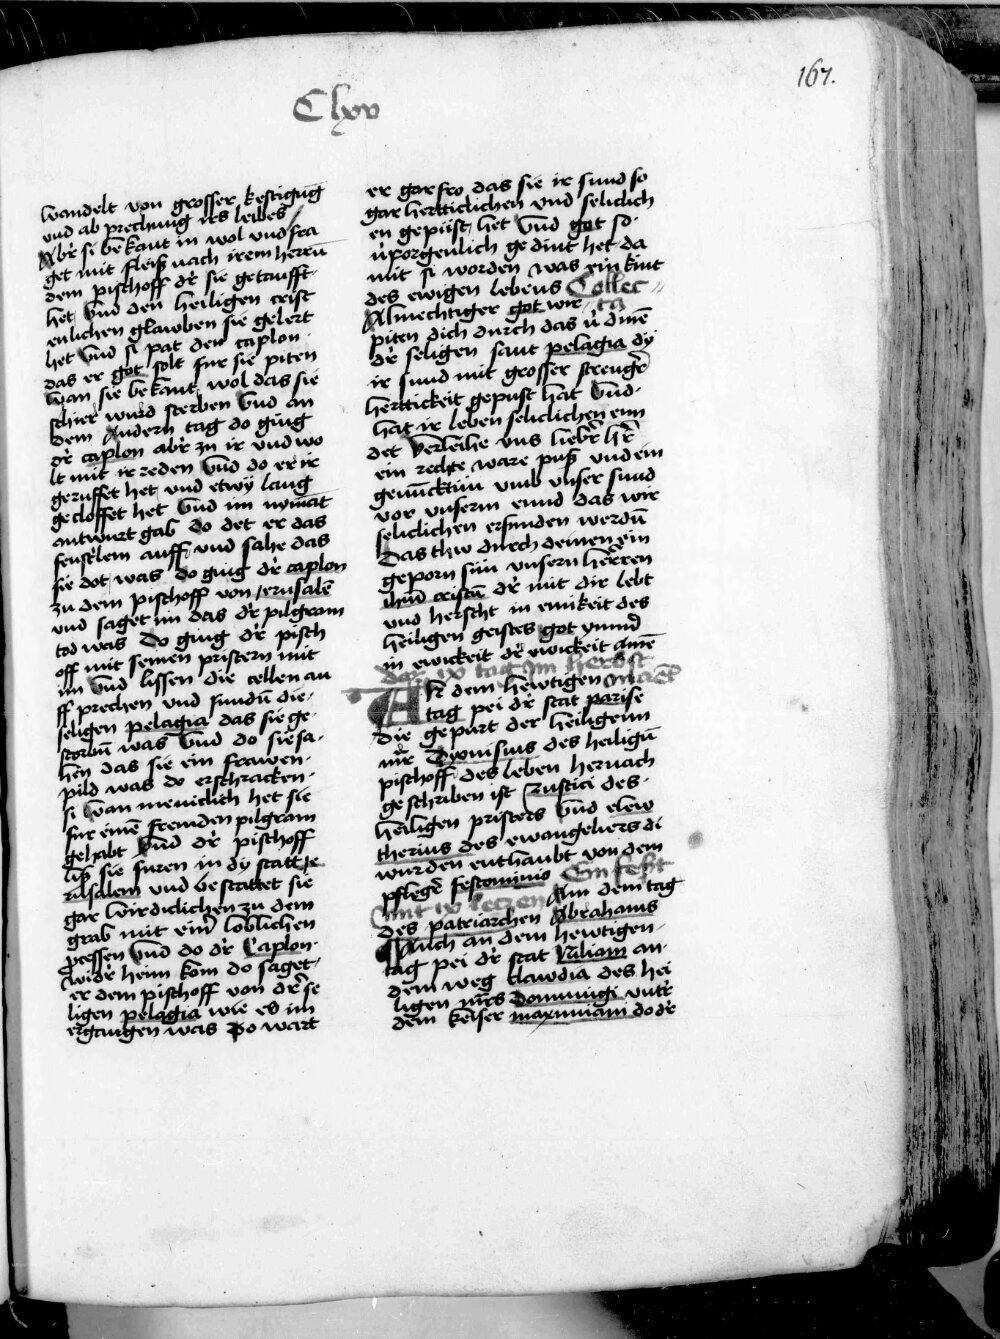 167.
Clxv
wandelt von grosser kestigūg
vnd ab prechung irs leibes
Abr si bekant in wol vnd fra
get mit fleiß nach irem herrn
dem pischoff dr sie getaufft
het Vnd den heiligen crist
enlichen glawben sie gelert
het Vnd si pat den caplon
das er got solt fur sie piten
wan sie bekant wol das sie
schier wurd sterben Vnd an
dem Andern tag do ging
dr caplon abr zu ir vnd wo
lt mit ir reden Vnd do er ir
geruffet het vnd etwy lang
gecloffet het Vnd im nymāt
antwurt gab do det er das
fenstlein auff vnd sahe das
sie dot was do ging dr caplon
zu dem pischoff von ierusalē
vnd saget im das dr pilgram
tod was Do ging dr pisch
off mit seinen pristern mit
im Vnd lissen die cellen au
ff prechen vnd fundū die
seligen pelagia das sie ge
storbn was Vnd do sie sa
hen das sie ein frawen
pild was do erschracken
si wan meniclich het sie
fur einē fremden pilgram
gehabt Vnd dr pischoff
liß sie furen in dy statt ie
rusalem vnd bestattet sie
gar wirdiclichen zu dem
grab mit einr loblichen
pcessen Vnd do dr Caplon
widr heim kom do saget
er dem pischoff von dr se
ligen pelagia wie es im
ergangen was Do wart
er gar fro das sie ir sund so
gar hertticlichen vnd seliclich
en gepüst het Vnd got so
v̇porgenlich gedint het da
mit si worden was ein kint
des ewigen lebens Collec
Almechtiger got wir ta
piten dich durch das v̇dinē
dr seligen sant pelagia dy
ir sund mit grosser strengr
herttickeit gepust hat Vnd
hat ir leben seliclichen enn
det Verleihe vns liebr hr
ein rechte ware puß vnd ein
genücktün vmb vnser sund
vor vnserm ennd das wir
seliclichen erfunden werdū
Das thw durch deinen ein
geporn sün vnsern herren
ihm̄ cristū dr mit dir lebt
vnd herscht in einikeit des
heiligen geistes got ymmr
in ewickeit dr ewickeit amē
der ix tag im herbst
AN dem hewtigen maēd
tag pei dr stat parise
die gepurt der heiligenn
mr Dyonisius des heiligū
pischoff des leben hernach
geschriben ist Rustici des
heiligen pristers Vnd elew
therius des ewangeliers di
wurden enthaubt von dem
pflegr fescominio Ein fest
mit ix leczen An dem tag
des patriarchen Abrahams
Auch an dem hewtigen
tag pei dr stat Iuliam an
dem weg klawdia des hei
ligen mrs Domningi vntr
dem keiser maximiani do dr